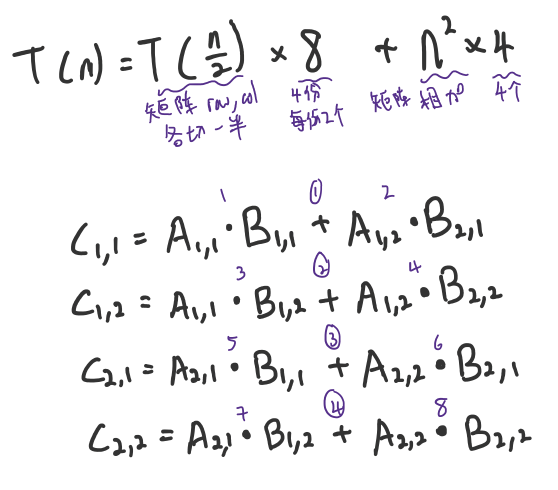 T(n) = T(n/2) × 8 + n² × 4
矩阵 row, col 各切一半
4份 每份2个
矩阵 相加
4个
1 ① 2
C1,1 = A1,1 · B1,1 + A1,2 · B2,1
3 ② 4
C1,2 = A1,1 · B1,2 + A1,2 · B2,2
5 ③ 6
C2,1 = A2,1 · B1,1 + A2,2 · B2,1
7 ④ 8
C2,2 = A2,1 · B1,2 + A2,2 · B2,2